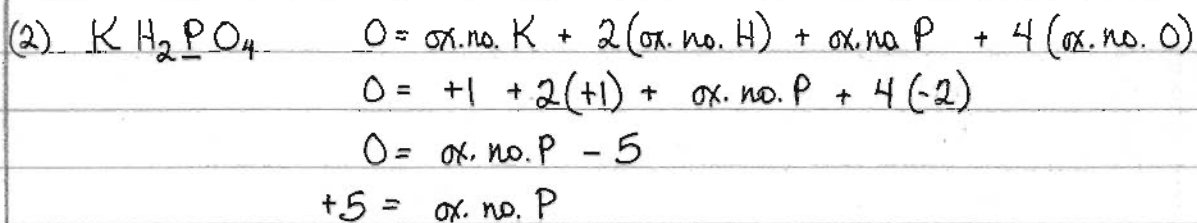 (2) K H₂PO₄ 0 = ox.no. K + 2(ox. no. H) + ox.no. P + 4(ox. no. O)
0 = +1 + 2(+1) + ox. no. P + 4(-2)
0 = ox. no. P - 5
+5 = ox. no. P